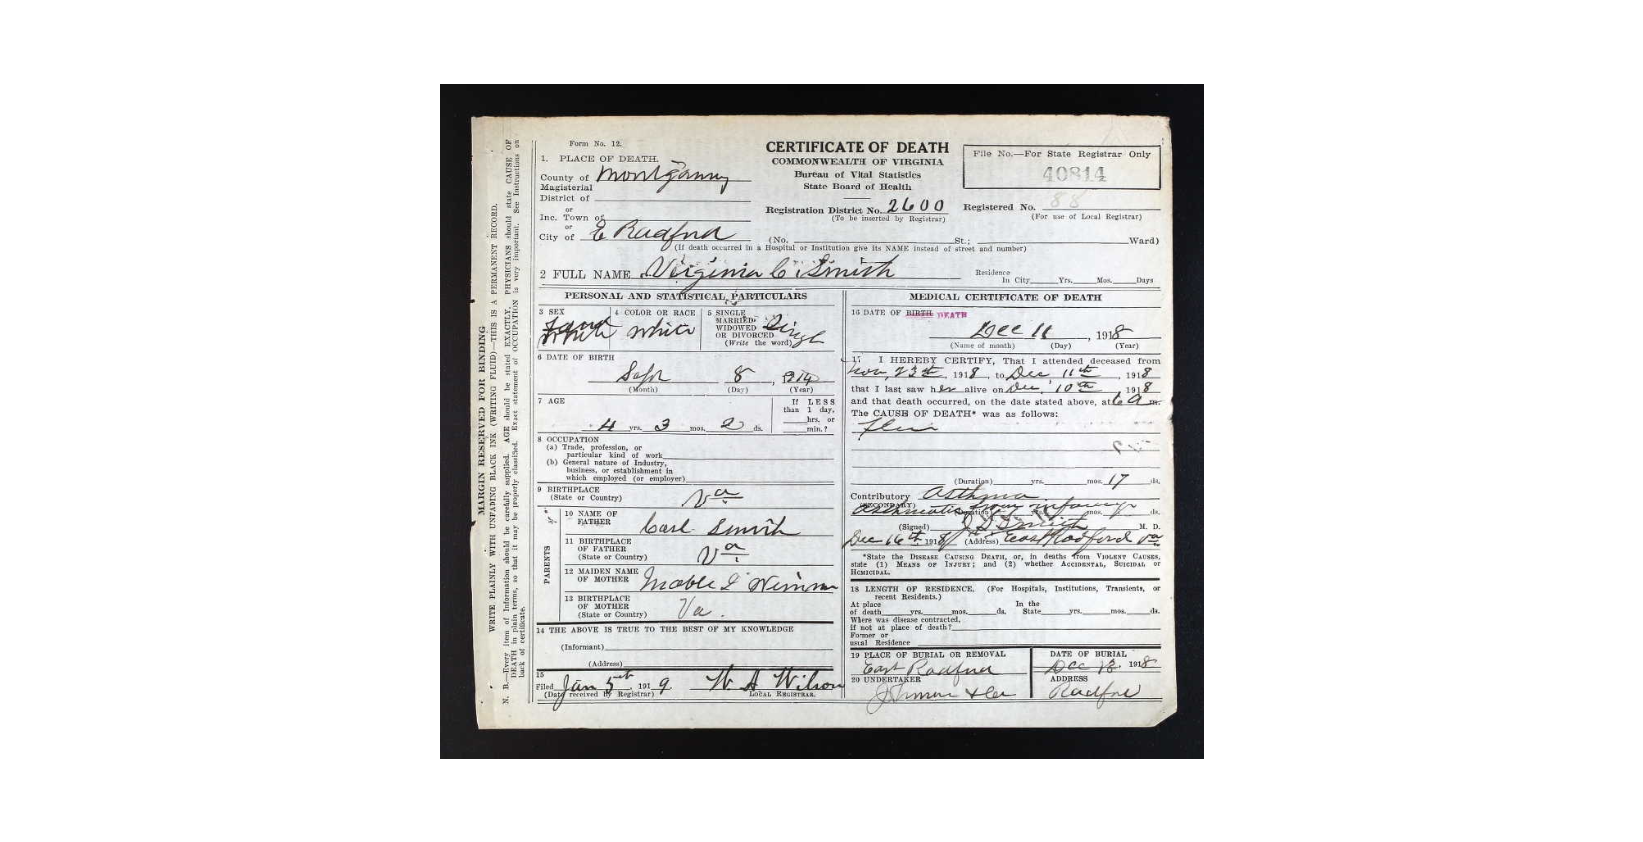 Form No. 12.
CERTIFICATE OF DEATH
COMMONWEALTH OF VIRGINIA
Bureau of Vital Statistics
State Board of Health
File No.—For State Registrar Only
40814
1. PLACE OF DEATH.
County of Montgomery
Magisterial
District of
or
Inc. Town of
or
City of E Radford
Registration District No. 2600
(To be inserted by Registrar)
Registered No. 88
(For use of Local Registrar)
(No. St.; Ward)
(If death occurred in a Hospital or Institution give its NAME instead of street and number)
2 FULL NAME Virginia C. Smith
Residence
In City Yrs. Mos. Days
PERSONAL AND STATISTICAL PARTICULARS
3 SEX
4 COLOR OR RACE
White
5 SINGLE
MARRIED
WIDOWED
OR DIVORCED
(Write the word)
Single
6 DATE OF BIRTH
Sept 8, 1914
(Month) (Day) (Year)
7 AGE
4 yrs. 3 mos. 2 ds.
If LESS
than 1 day,
hrs. or
min.?
8 OCCUPATION
(a) Trade, profession, or
particular kind of work
(b) General nature of Industry,
business, or establishment in
which employed (or employer)
9 BIRTHPLACE
(State or Country)
Va
PARENTS
10 NAME OF
FATHER
Carl Smith
11 BIRTHPLACE
OF FATHER
(State or Country)
Va
12 MAIDEN NAME
OF MOTHER
Mable
13 BIRTHPLACE
OF MOTHER
(State or Country)
Va.
14 THE ABOVE IS TRUE TO THE BEST OF MY KNOWLEDGE
(Informant)
(Address)
15
Filed Jan 5th, 1919. W A Wilson
(Date received by Registrar) LOCAL REGISTRAR.
MEDICAL CERTIFICATE OF DEATH
16 DATE OF BIRTH DEATH
Dec 11, 1918
(Name of month) (Day) (Year)
17 I HEREBY CERTIFY, That I attended deceased from
Nov, 23th, 1918, to Dec 11th, 1918
that I last saw her alive on Dec, 10th, 1918
and that death occurred, on the date stated above, at 6 A m.
The CAUSE OF DEATH* was as follows:
Flu
(Duration) yrs. mos. 17 ds.
Contributory Asthma
(SECONDARY)
Asthmatic from infancy
(Duration) yrs. mos. ds.
(Signed) Smith M. D.
Dec 16th 1918 (Address) East Radford Va
*State the DISEASE CAUSING DEATH, or, in deaths from VIOLENT CAUSES,
state (1) MEANS OF INJURY; and (2) whether ACCIDENTAL, SUICIDAL or
HOMICIDAL.
18 LENGTH OF RESIDENCE. (For Hospitals, Institutions, Transients, or
recent Residents.)
At place
of death yrs. mos. ds.
In the
State yrs. mos. ds.
Where was disease contracted,
if not at place of death?
Former or
usual Residence
19 PLACE OF BURIAL OR REMOVAL
East Radford
DATE OF BURIAL
Dec 12, 1918
20 UNDERTAKER
ADDRESS
Radford
MARGIN RESERVED FOR BINDING
WRITE PLAINLY WITH UNFADING BLACK INK (WRITING FLUID)—THIS IS A PERMANENT RECORD.
N. B.—Every item of Information should be carefully supplied. AGE should be stated EXACTLY. PHYSICIANS should state CAUSE OF
DEATH in plain terms, so that it may be properly classified. Exact statement of OCCUPATION is very important. See Instructions on
back of certificate.